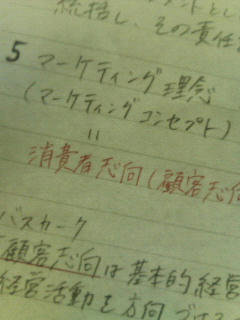 統括し、その責任
5 マーケティング理念
(マーケティングコンセプト)
=
消費者志向(顧客志向
バスカーク
顧客志向は基本的経営
経営活動を方向づける